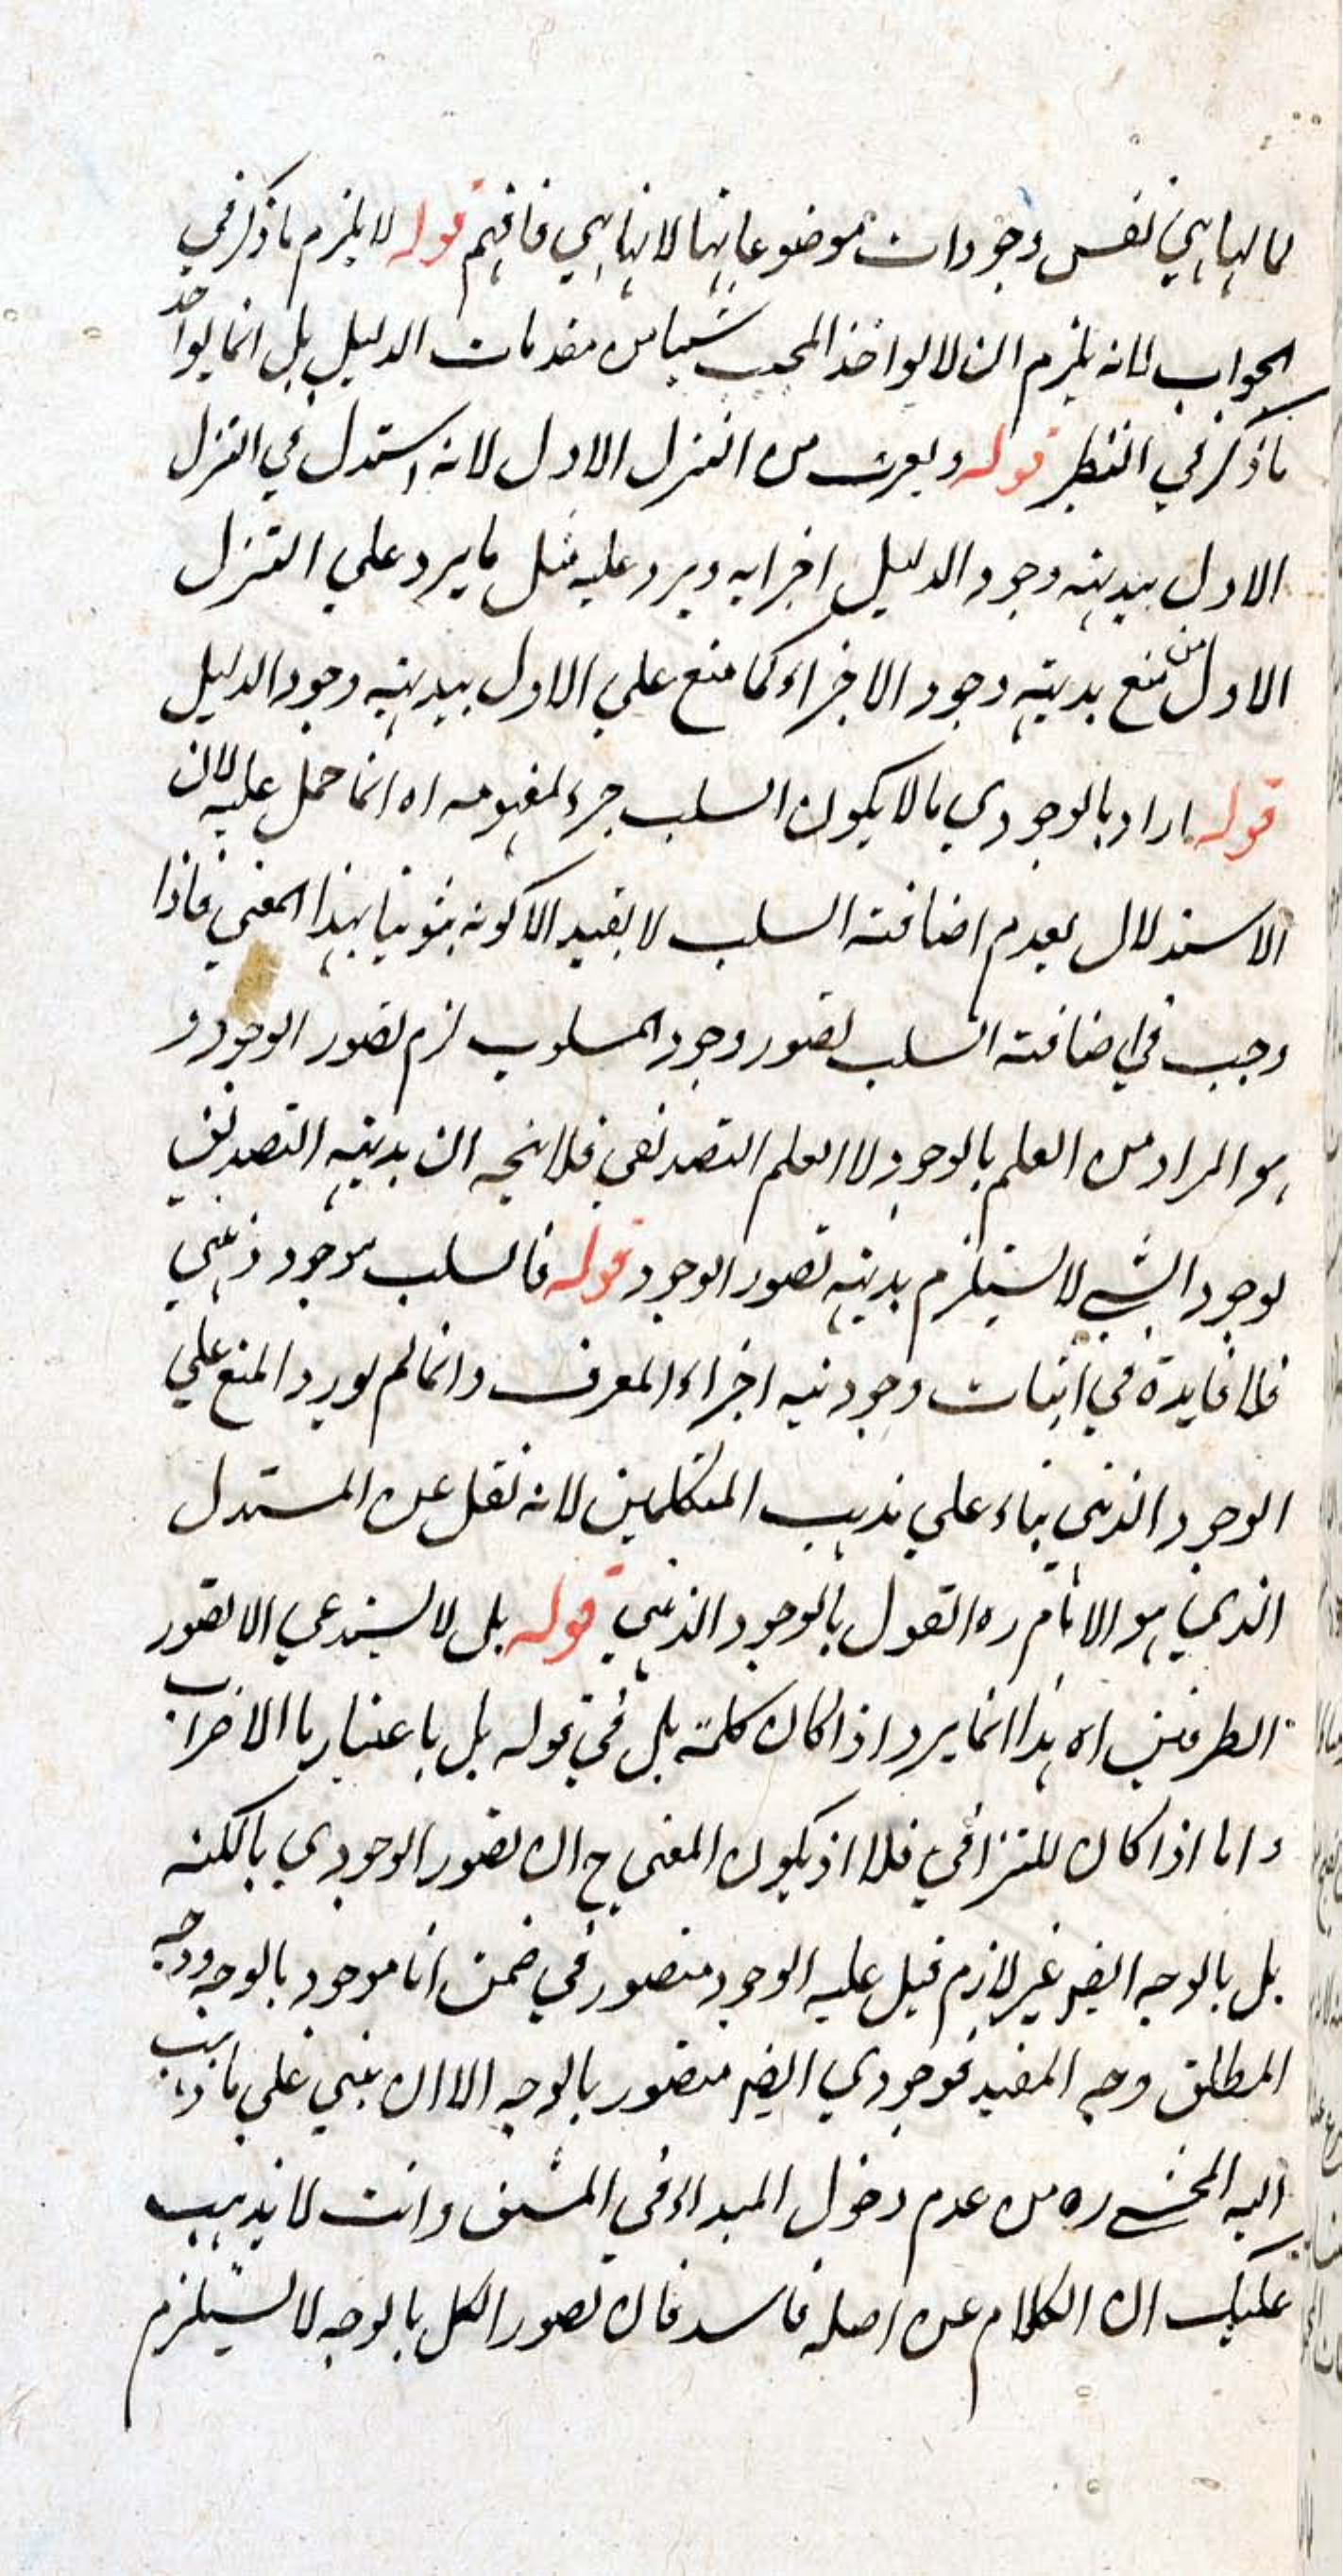 لما لها هي نفس وجودات موضوعاتها لانها هي فافهم قوله لا يلزم ما ذكر في
الجواب لانه يلزم ان لا يواخذ المجيب شيئا من مقدمات الدليل بل انما يواخذ
ما ذكر في النظر قوله ويقرب من التنزل الاول لانه استدل في التنزل
الاول ببديهة وجود الدليل اجزايه ويرد عليه مثل ما يرد علي التنزل
الاول من منع بديهة وجود الاجزاء كما منع علي الاول ببديهة وجود الدليل
قوله اراد بالوجودي ما لا يكون السلب جزء لمفهومه اه انما حمل عليه لان
الاستدلال بعدم اضافة السلب لا يفيد الا كونه ثبوتيا بهذا المعني فاذا
وجب في اضافة السلب تصور وجود المسلوب لزم تصور الوجود و
هو المراد من العلم بالوجود لا العلم التصديقي فلا يتجه ان بديهة التصديق
بوجود الشي لا يستلزم بديهة تصور الوجود قوله فالسلب موجود ذهني
فلا فايدة في اثبات وجودية اجزاء المعرف وانما لم يورد المنع علي
الوجود الذهني بناء علي مذهب المتكلمين لانه نقل عن المستدل
الذي هو الامام ره القول بالوجود الذهني قوله بل لا يستدعي الا تصور
الطرفين اه هذا انما يرد اذا كان كلمة بل في قوله بل باعتبار ما الاضراب
واما اذا كان للترقي فلا اذ يكون المعني ح ان تصور الوجودي بالكنه
بل بالوجه ايضا غير لازم قيل عليه الوجود متصور في ضمن انا موجود بالوجه ووجه
المطلق وجه المقيد فوجودي ايضا متصور بالوجه الا ان يبني علي ما ذهب
اليه المحشي ره من عدم دخول المبداء في المشتق وانت لا يذهب
عليك ان الكلام عن اصله فاسد فان تصور الكل بالوجه لا يستلزم